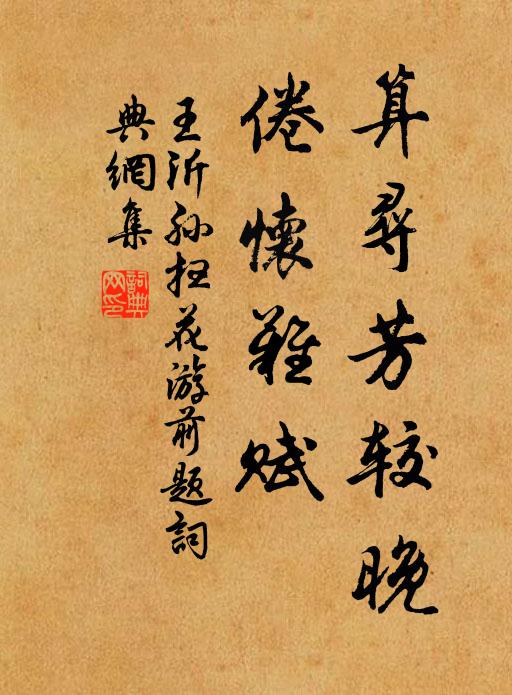 算尋芳较晚
倦懷難赋
王沂孙扫花游前题詞
典網集
詞典网印